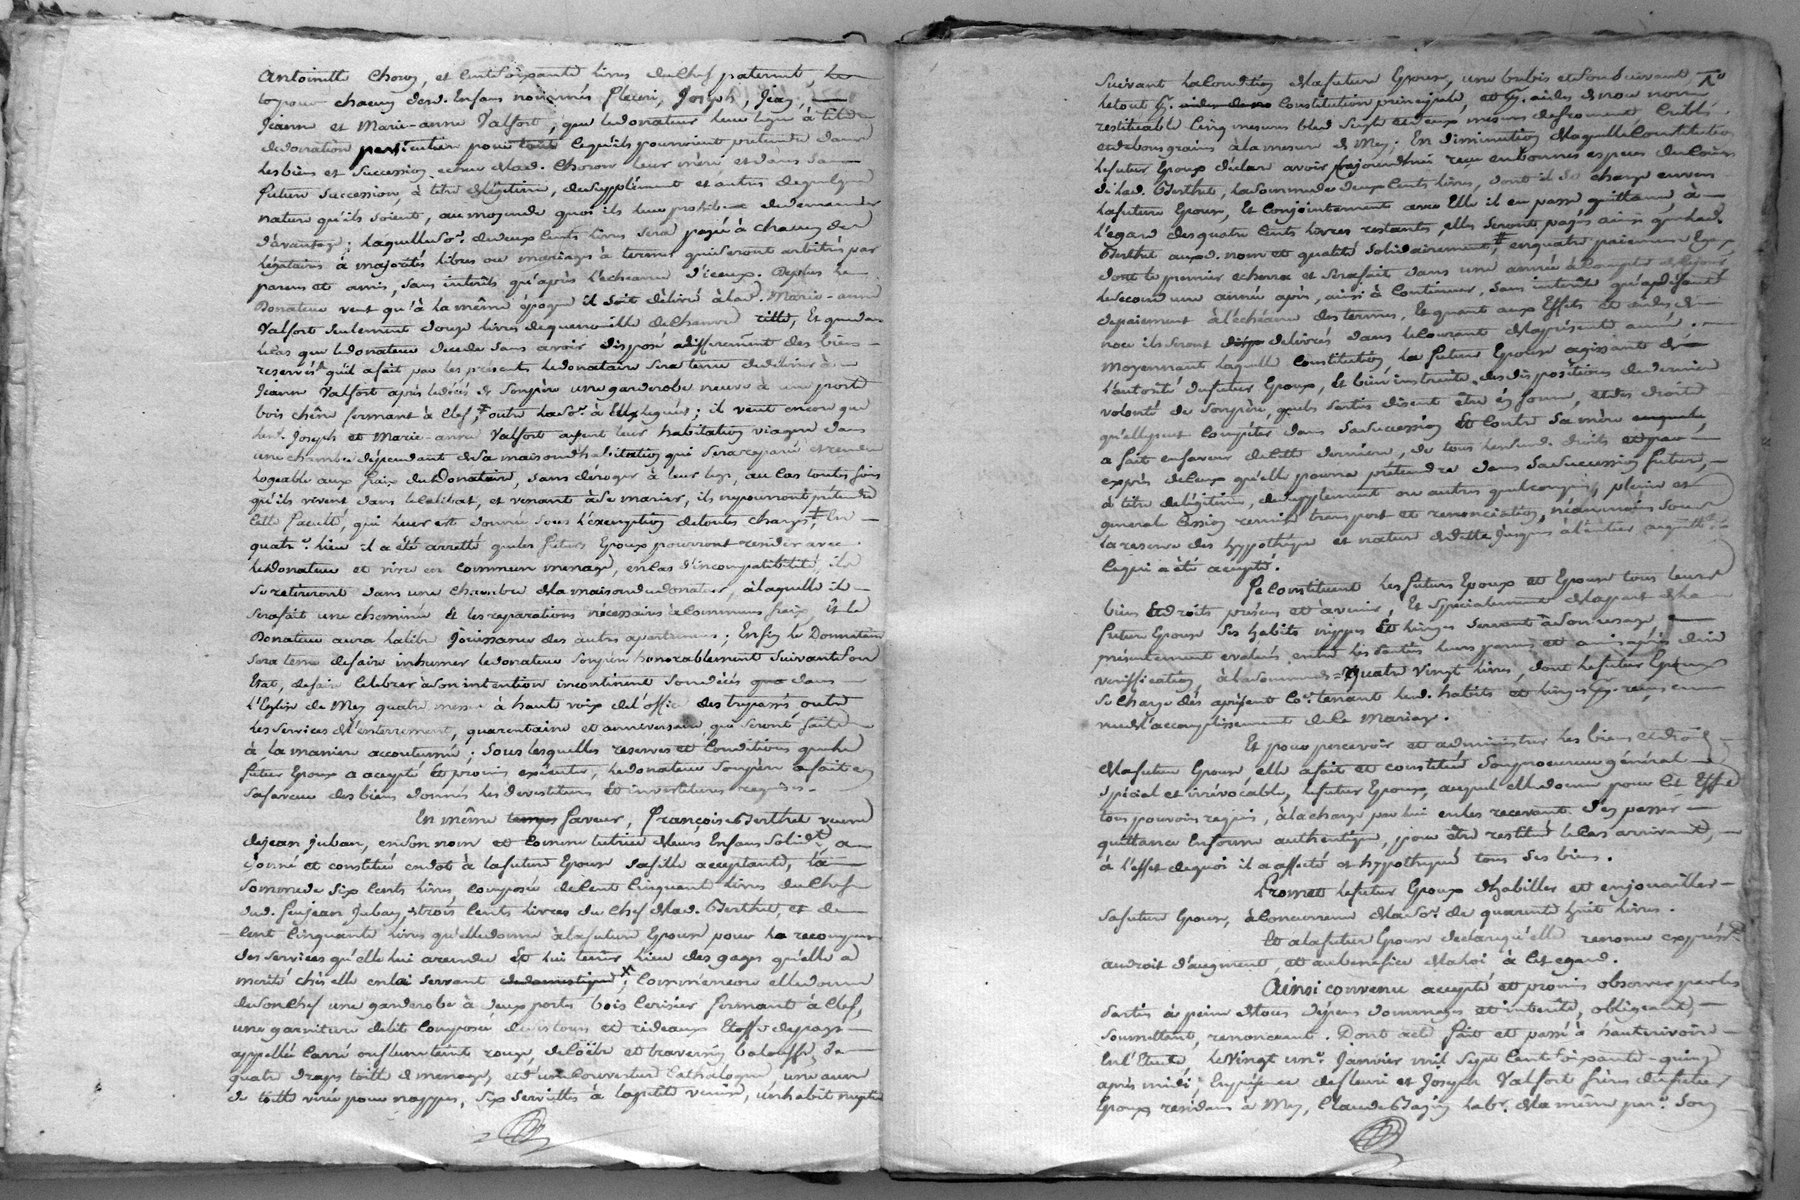 Antoinette Choron, et cent soixante livres du chef paternel, le
tout pour chacun desd. Enfans nommés fleuri, Joseph, Jean,
Jeanne et Marie-anne Valfort, que le donateur leur legue à titre
de donation particuliere pour tout ce qu'ils pourroient pretendre dans
les biens et Succession echue de lad. Choron leur mere, et dans sa
future Succession, à titre de légitime, de supplément et autres de quelque
nature qu'ils soient, au moyen de quoi ils leur prohibe de demander
d'avantage; laquelle so.e de deux cents livres sera payée à chacun des
légataires à majorités libres ou mariages à termes qui seront arbitrés par
parens et amis, sans intérêts qu'après l'echeance d'iceux. De plus le
Donateur veut qu'à la même époque il soit délivré à lad. Marie-anne
Valfort seulement douze livres de quenouille de chanvre, Et que dans
le cas que le donateur decede sans avoir disposé differemment des biens
reservés qu'il a fait par les présentes, le donataire sera tenu de délivrer à
Jeanne Valfort après le décès de Son père une garderobe neuve à une porte
bois chêne fermant à clef, outre la so.e à Elle leguée; il veut encore que
lesd. Joseph et Marie-anne Valfort ayent leur habitation viagere dans
une chambre dépendant de sa maison d'habitation qui sera reparée et rendue
logeable aux fraix du Donataire, sans déroger à leur legs, au cas toutes fois
qu'ils vivent dans le celibat, et venant à se marier, ils n'y pourront prétendre
cette faculté, qui leur est donnée sous l'exemption de toutes charges. En
quatr.e lieu il a été arretté que les futurs Epoux pourront resider avec
le donateur et vivre en commun menage, en cas d'incompatibilité, ils
se retireront dans une chambre de la maison du donateur, à laquelle il
sera fait une cheminée et les reparations nécessaires à communs fraix, et le
Donateur aura la libre jouissance des autres apartemens; Enfin le Donnataire
sera tenu de faire inhumer le donateur son père honorablement suivant son
Etat, de faire celebrer à son intention incontinent son décès que dans
l'Eglise de Mey quatre messes à haute voix de l'office des trepassés outre
les services de l'enterrement, quarantaine et anniversaire, qui seront faits
à la maniere accoutumée; Sous lesquelles reserves et Conditions que le
futur Epoux a accepté Et promis exécuter, le donateur son père a fait en
sa faveur des biens donnés les devestitures et investitures requises.
En même faveur, françoise Berthet veuve
de jean juban, en son nom et comme tutrice de leurs Enfans solid.t a
donné et constitué en dot à la future Epouse sa fille acceptante, la
somme de six cents livres composée de cent cinquante livres du chef
dud. feu jean Juban, trois cents livres du chef de lad. Berthet, et de
cent cinquante livres qu'elle donne à la future Epouse pour la recompense
des services qu'elle lui a rendu Et lui tenir lieu des gages qu'elle a
merité chés elle en la servant; comme encore elle donne
de son chef une garderobe à deux portes bois cerisier fermant à clef,
une garniture de lit composée de ses tours et rideaux Etoffe de pays
appellée carré ou fleur teint rouge, de coëte et traversin, de
quatre draps toille de menage, et d'une couverture Cathalogne, une aune
de toille virée pour nappes, six serviettes à la petite venise, un habit nuptial
Suivant la condition de la future Epouse, une brebis et son suivant
le tout p. constitution principale, et p. aides de noce non
restituable cinq mesures bled seigle et deux mesures de froment criblé
et de bons grains à la mesure de Mey; En diminution de laquelle Constitution
le futur Epoux declare avoir aujourd'hui reçu en bonnes especes du cours
de lad. Berthet, la somme de deux cents livres, dont il se charge envers
la future Epouse, Et conjointement avec Elle il en passe quittance à
l'egard des quatre cents livres restants, elles seront payés ainsi que lad.
Berthet auxd. nom et qualité solidairement, en quatre paiemens Egaux
dont le premier echerra et sera fait dans une année à compter de ce jour
le second une année après, ainsi à continuer, sans intérêt qu'à défaut
de paiement à l'échéance des termes, Et quant aux Effets et aides de
noce ils seront délivrés dans le courant de la présente année.
Moyennant laquelle Constitution la future Epouse agissante de
l'autorité du futur Epoux, Et bien instruite des dispositions de derniere
volonté de son père, que les parties disent être en forme, et des droits
qu'elle peut compéter dans sa succession Et contre sa mère
a fait en faveur de cette derniere, de tous lesd. droits et par
exprès de ceux qu'elle pourra prétendre dans sa succession future,
à titre de légitime, de supplement ou autres quelconques, pleine et
generale Cession remise transport et renonciation, néanmoins sous
la reserve des hypotheques et nature de dette jusques à l'entier acquittem.t
ce qui a été accepté.
Se constituent les futurs Epoux et Epouse tous leurs
biens Et droits présens et à venir, Et specialement de la part de la
future Epouse ses habits nippes Et linges servant à son usage,
présentement evalués entre les parties leurs parens et amis après due
veriffication, à la somme de quatre vingt livres, dont le futur Epoux
se charge dès à présent co.e tenant lesd. habits et linges p. reçus en
vue de l'accomplissement de ce Mariage.
Et pour percevoir et administrer les biens et droits
de la future Epouse, elle a fait et constitué son procureur général
spécial et irrévocable, le futur Epoux, auquel elle donne pour cet Effet
tous pouvoirs requis, à la charge par lui en les recevant d'en passer
quittance En forme authentique, pour être restitué le cas arrivant,
à l'effet de quoi il a affecté et hypothequé tous ses biens.
Promet le futur Epoux d'habiller et enjouailler
sa future Epouse, à concurrence de la so.e de quarente huit livres.
Et a la future Epouse declaré qu'elle renonce exppréss.t
au droit d'augment, et au benefice de la loi à cet egard.
Ainsi convenu accepté et promis observer par les
Parties à peine de tous dépens dommages et intérêts, obligeant,
soumettant, renonceant. Dont acte fait et passé à hauterivoire
En l'Etude le vingt un.e Janvier mil sept cent soixante-quinze
après midi; En présence de fleuri et Joseph Valfort frères du futur
Epoux residans à Mey, Claude Bazin lab.r de la même par.e Son